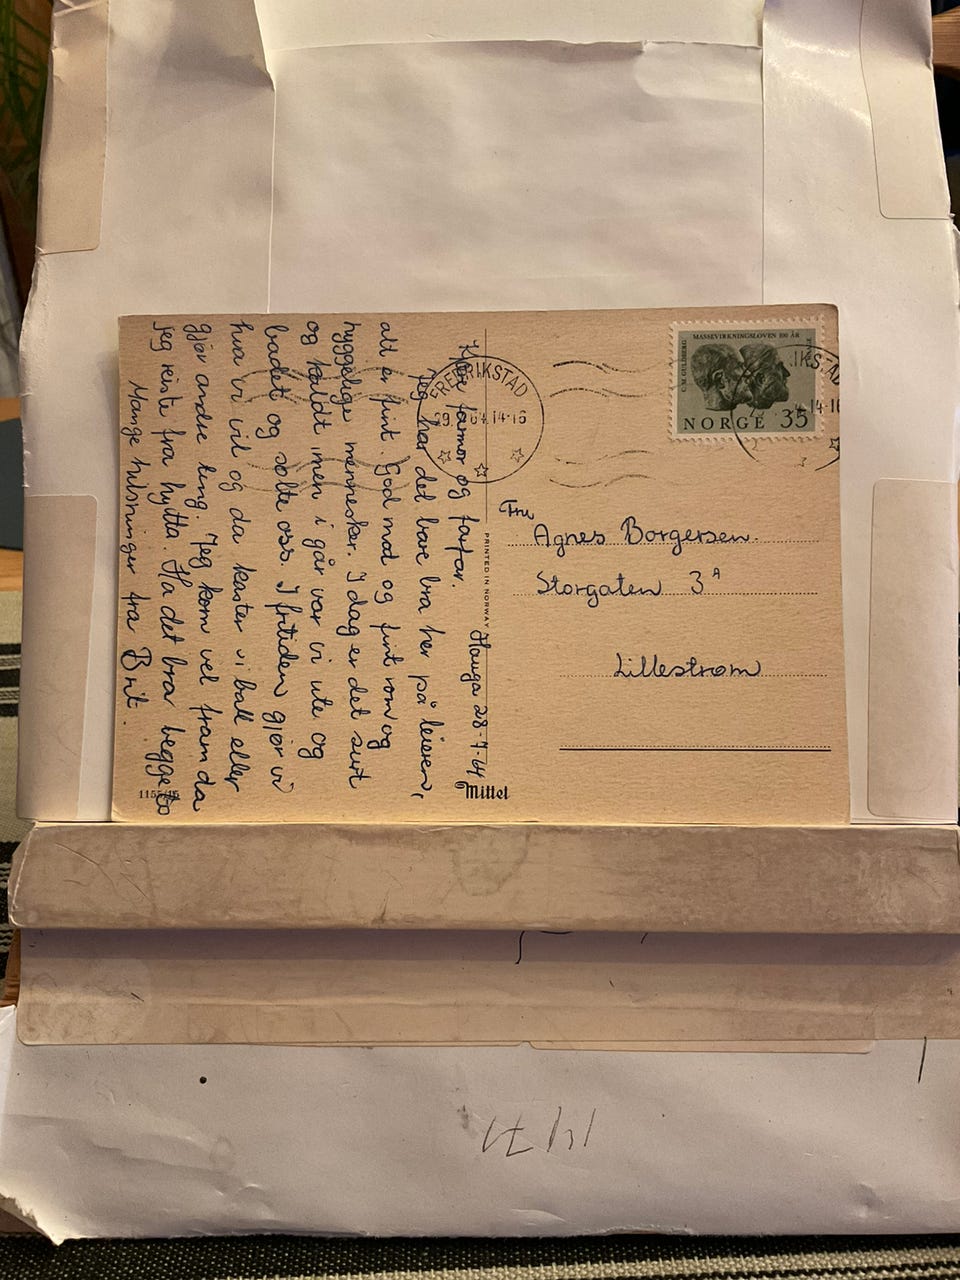 Hauga 28-7-64
Kjære farmor og farfar.
Jeg har det bare bra her på leieren,
alt er fint. God mad og fint rom og
hyggelige mennesker. I dag er det surt
og kaldt men i går var vi ute og
badet og solte oss. I fritiden gjør vi
hva vi vil og da kaster vi ball eller
gjør andre ting. Jeg kom vel fram da
jeg reiste fra hytta. Ha det bra begge to
Mange hilsninger fra Brit.
1155/15
PRINTED IN NORWAY
Mittet
FREDRIKSTAD
29. 64 14-16
MASSEVIRKNINGSLOVEN 100 ÅR
C.M. GULDBERG
NORGE 35
IKSTAD
14-16
Fru
Agnes Borgersen.
Storgaten 3A
Lillestrøm